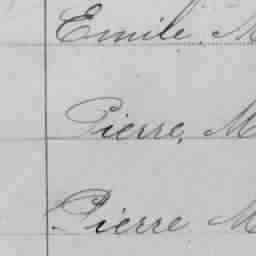 Emile. M
Pierre, M
Pierre M